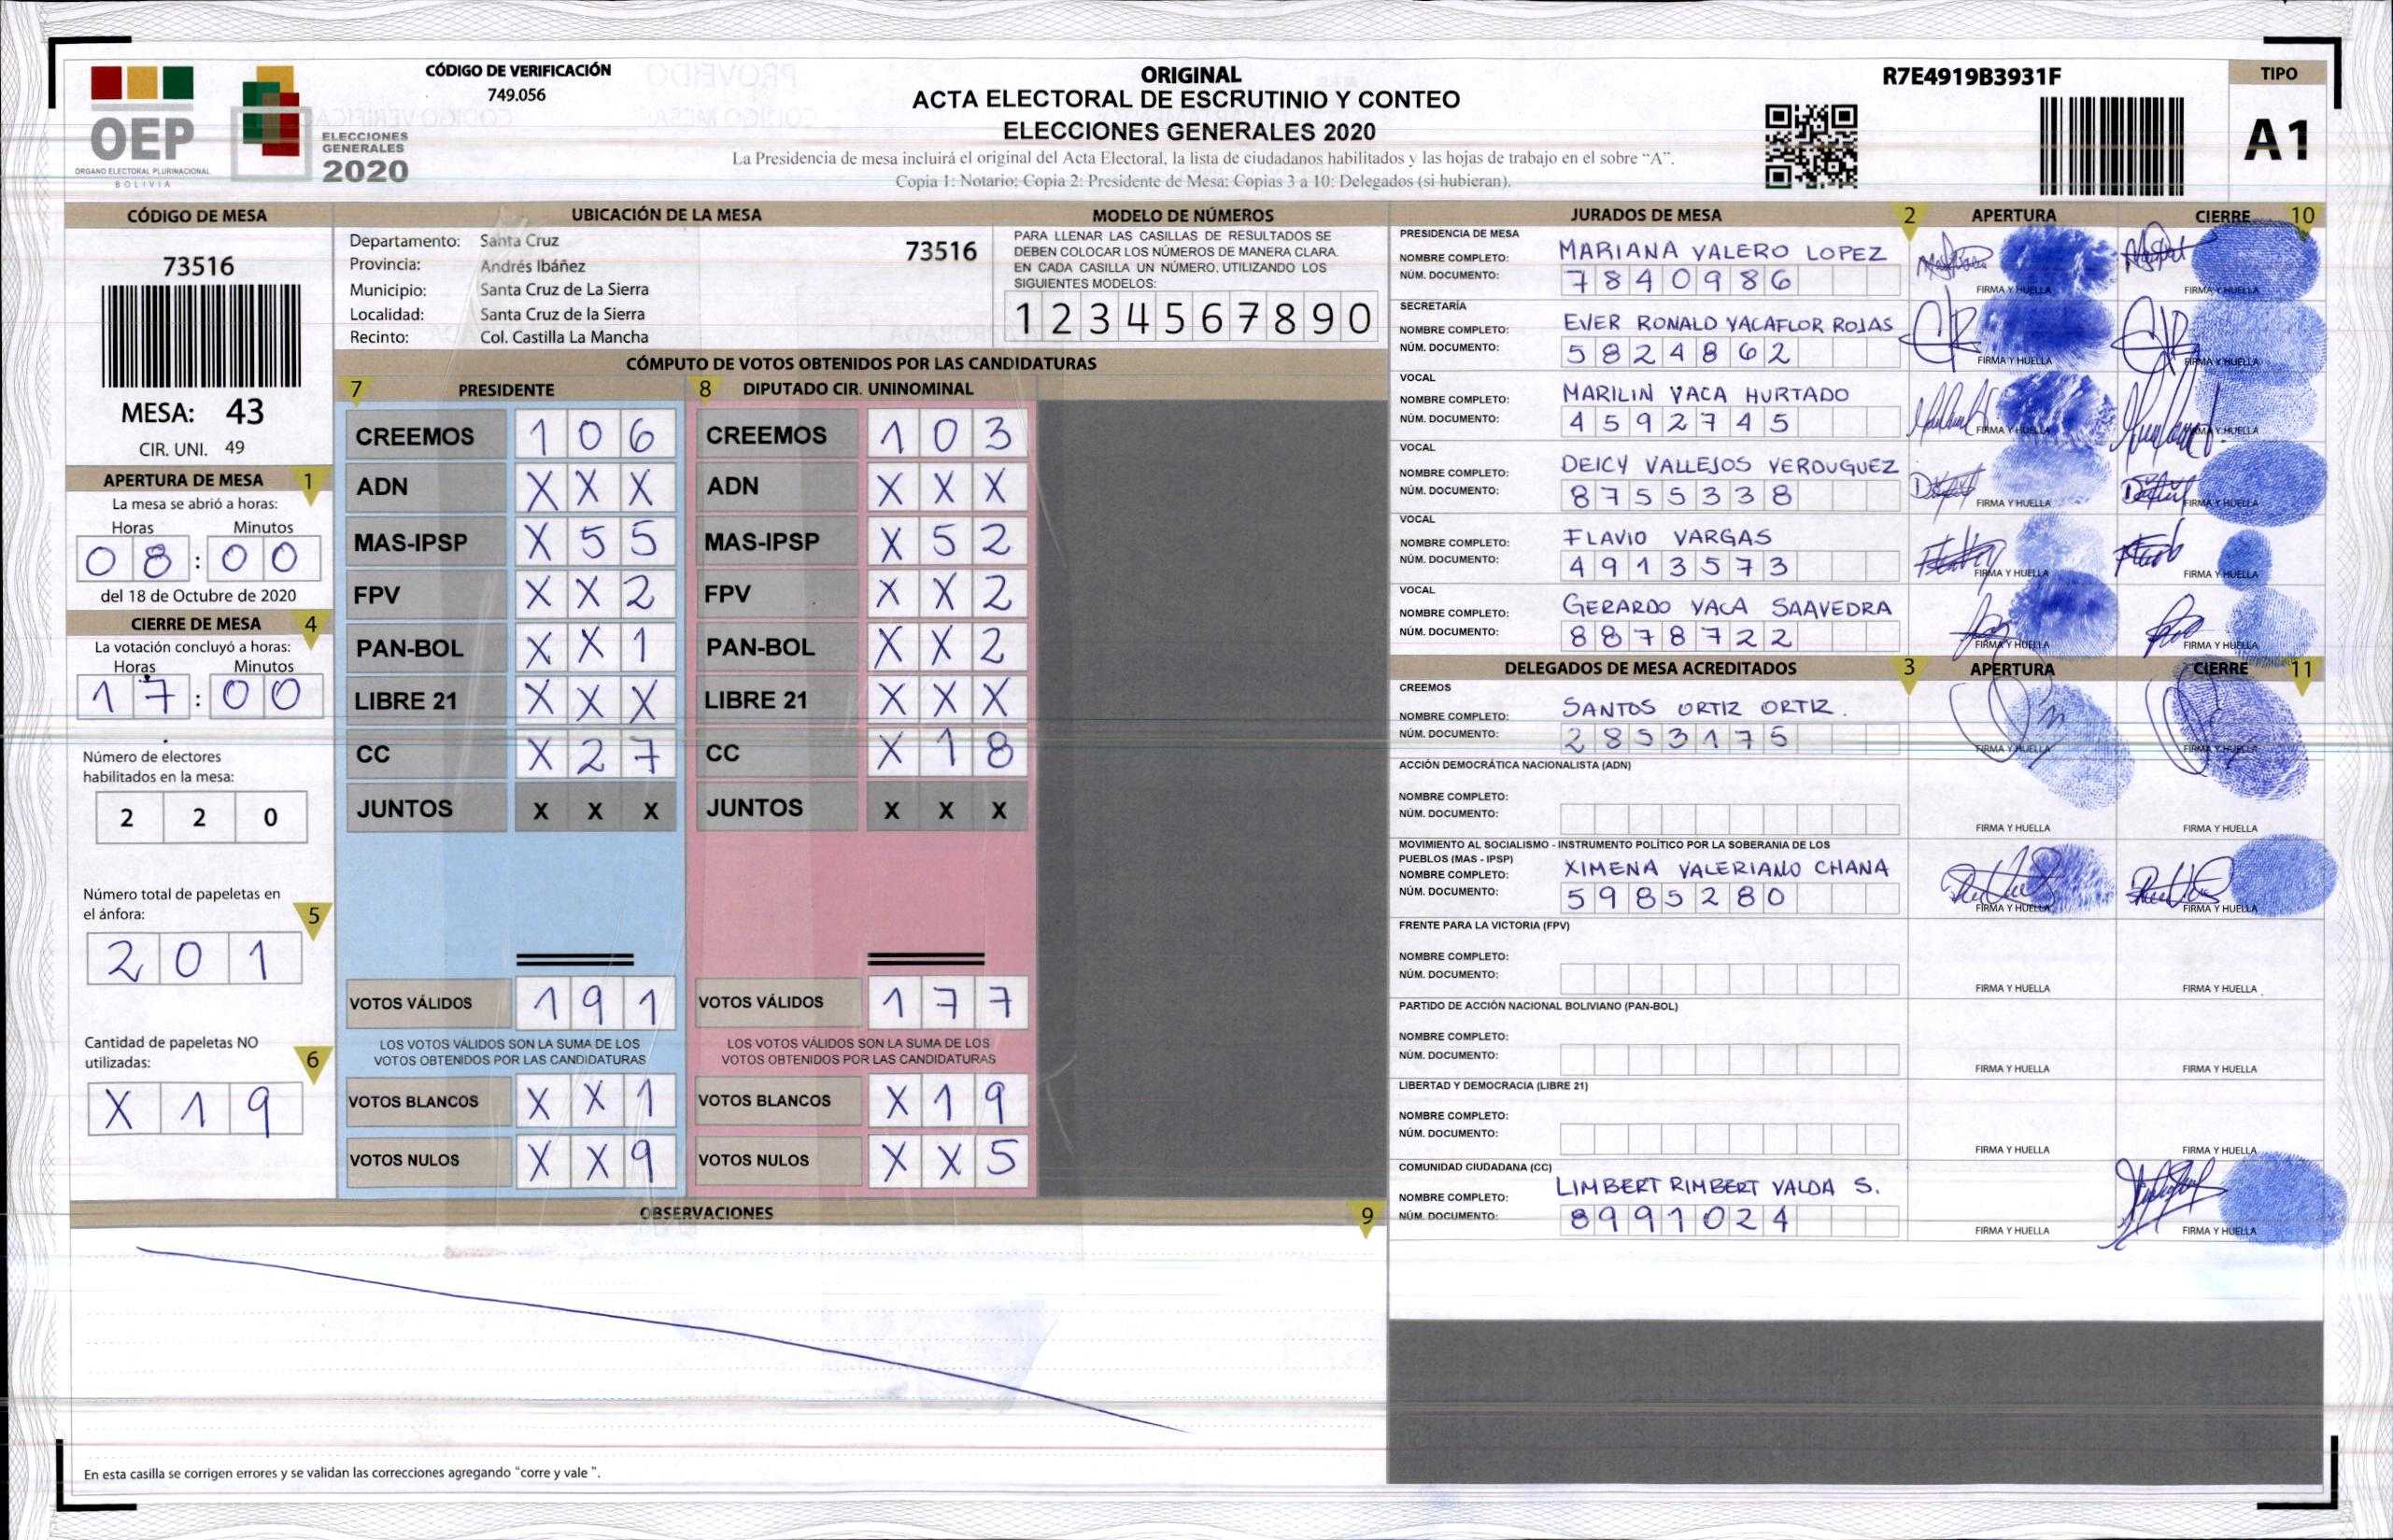 OEP
ORGANO ELECTORAL PLURINACIONAL
BOLIVIA
ELECCIONES
GENERALES
2020
CÓDIGO DE VERIFICACIÓN
749.056
ORIGINAL
ACTA ELECTORAL DE ESCRUTINIO Y CONTEO
ELECCIONES GENERALES 2020
La Presidencia de mesa incluirá el original del Acta Electoral, la lista de ciudadanos habilitados y las hojas de trabajo en el sobre “A”.
Copia 1: Notario: Copia 2: Presidente de Mesa: Copias 3 a 10: Delegados (si hubieran).
R7E4919B3931F
TIPO
A1
CÓDIGO DE MESA
73516
MESA: 43
CIR. UNI. 49
APERTURA DE MESA 1
La mesa se abrió a horas:
Horas Minutos
0 8 : 0 0
del 18 de Octubre de 2020
CIERRE DE MESA 4
La votación concluyó a horas:
Horas Minutos
1 7 : 0 0
Número de electores
habilitados en la mesa:
2 2 0
Número total de papeletas en
el ánfora: 5
2 0 1
Cantidad de papeletas NO
utilizadas: 6
X 1 9
UBICACIÓN DE LA MESA
Departamento: Santa Cruz
73516
Provincia: Andrés Ibáñez
Municipio: Santa Cruz de La Sierra
Localidad: Santa Cruz de la Sierra
Recinto: Col. Castilla La Mancha
MODELO DE NÚMEROS
PARA LLENAR LAS CASILLAS DE RESULTADOS SE
DEBEN COLOCAR LOS NÚMEROS DE MANERA CLARA.
EN CADA CASILLA UN NÚMERO, UTILIZANDO LOS
SIGUIENTES MODELOS:
1 2 3 4 5 6 7 8 9 0
CÓMPUTO DE VOTOS OBTENIDOS POR LAS CANDIDATURAS
7 PRESIDENTE 8 DIPUTADO CIR. UNINOMINAL
CREEMOS 1 0 6 CREEMOS 1 0 3
ADN X X X ADN X X X
MAS-IPSP X 5 5 MAS-IPSP X 5 2
FPV X X 2 FPV X X 2
PAN-BOL X X 1 PAN-BOL X X 2
LIBRE 21 X X X LIBRE 21 X X X
CC X 2 7 CC X 1 8
JUNTOS X X X JUNTOS X X X
VOTOS VÁLIDOS 1 9 1 VOTOS VÁLIDOS 1 7 7
LOS VOTOS VÁLIDOS SON LA SUMA DE LOS LOS VOTOS VÁLIDOS SON LA SUMA DE LOS
VOTOS OBTENIDOS POR LAS CANDIDATURAS VOTOS OBTENIDOS POR LAS CANDIDATURAS
VOTOS BLANCOS X X 1 VOTOS BLANCOS X 1 9
VOTOS NULOS X X 9 VOTOS NULOS X X 5
OBSERVACIONES 9
En esta casilla se corrigen errores y se validan las correcciones agregando “corre y vale ”.
JURADOS DE MESA 2 APERTURA CIERRE 10
PRESIDENCIA DE MESA
NOMBRE COMPLETO: MARIANA VALERO LOPEZ
NÚM. DOCUMENTO: 7 8 4 0 9 8 6
FIRMA Y HUELLA FIRMA Y HUELLA
SECRETARÍA
NOMBRE COMPLETO: EVER RONALD VACAFLOR ROJAS
NÚM. DOCUMENTO: 5 8 2 4 8 6 2
FIRMA Y HUELLA FIRMA Y HUELLA
VOCAL
NOMBRE COMPLETO: MARILIN VACA HURTADO
NÚM. DOCUMENTO: 4 5 9 2 7 4 5
FIRMA Y HUELLA FIRMA Y HUELLA
VOCAL
NOMBRE COMPLETO: DEICY VALLEJOS VERDUGUEZ
NÚM. DOCUMENTO: 8 7 5 5 3 3 8
FIRMA Y HUELLA FIRMA Y HUELLA
VOCAL
NOMBRE COMPLETO: FLAVIO VARGAS
NÚM. DOCUMENTO: 4 9 1 3 5 7 3
FIRMA Y HUELLA FIRMA Y HUELLA
VOCAL
NOMBRE COMPLETO: GERARDO VACA SAAVEDRA
NÚM. DOCUMENTO: 8 8 7 8 7 2 2
FIRMA Y HUELLA FIRMA Y HUELLA
DELEGADOS DE MESA ACREDITADOS 3 APERTURA CIERRE 11
CREEMOS
NOMBRE COMPLETO: SANTOS ORTIZ ORTIZ.
NÚM. DOCUMENTO: 2 8 5 3 1 7 5
FIRMA Y HUELLA FIRMA Y HUELLA
ACCIÓN DEMOCRÁTICA NACIONALISTA (ADN)
NOMBRE COMPLETO:
NÚM. DOCUMENTO:
FIRMA Y HUELLA FIRMA Y HUELLA
MOVIMIENTO AL SOCIALISMO - INSTRUMENTO POLÍTICO POR LA SOBERANIA DE LOS
PUEBLOS (MAS - IPSP)
NOMBRE COMPLETO: XIMENA VALERIANO CHANA
NÚM. DOCUMENTO: 5 9 8 5 2 8 0
FIRMA Y HUELLA FIRMA Y HUELLA
FRENTE PARA LA VICTORIA (FPV)
NOMBRE COMPLETO:
NÚM. DOCUMENTO:
FIRMA Y HUELLA FIRMA Y HUELLA
PARTIDO DE ACCIÓN NACIONAL BOLIVIANO (PAN-BOL)
NOMBRE COMPLETO:
NÚM. DOCUMENTO:
FIRMA Y HUELLA FIRMA Y HUELLA
LIBERTAD Y DEMOCRACIA (LIBRE 21)
NOMBRE COMPLETO:
NÚM. DOCUMENTO:
FIRMA Y HUELLA FIRMA Y HUELLA
COMUNIDAD CIUDADANA (CC)
NOMBRE COMPLETO: LIMBERT RIMBERT VALDA S.
NÚM. DOCUMENTO: 8 9 9 1 0 2 4
FIRMA Y HUELLA FIRMA Y HUELLA